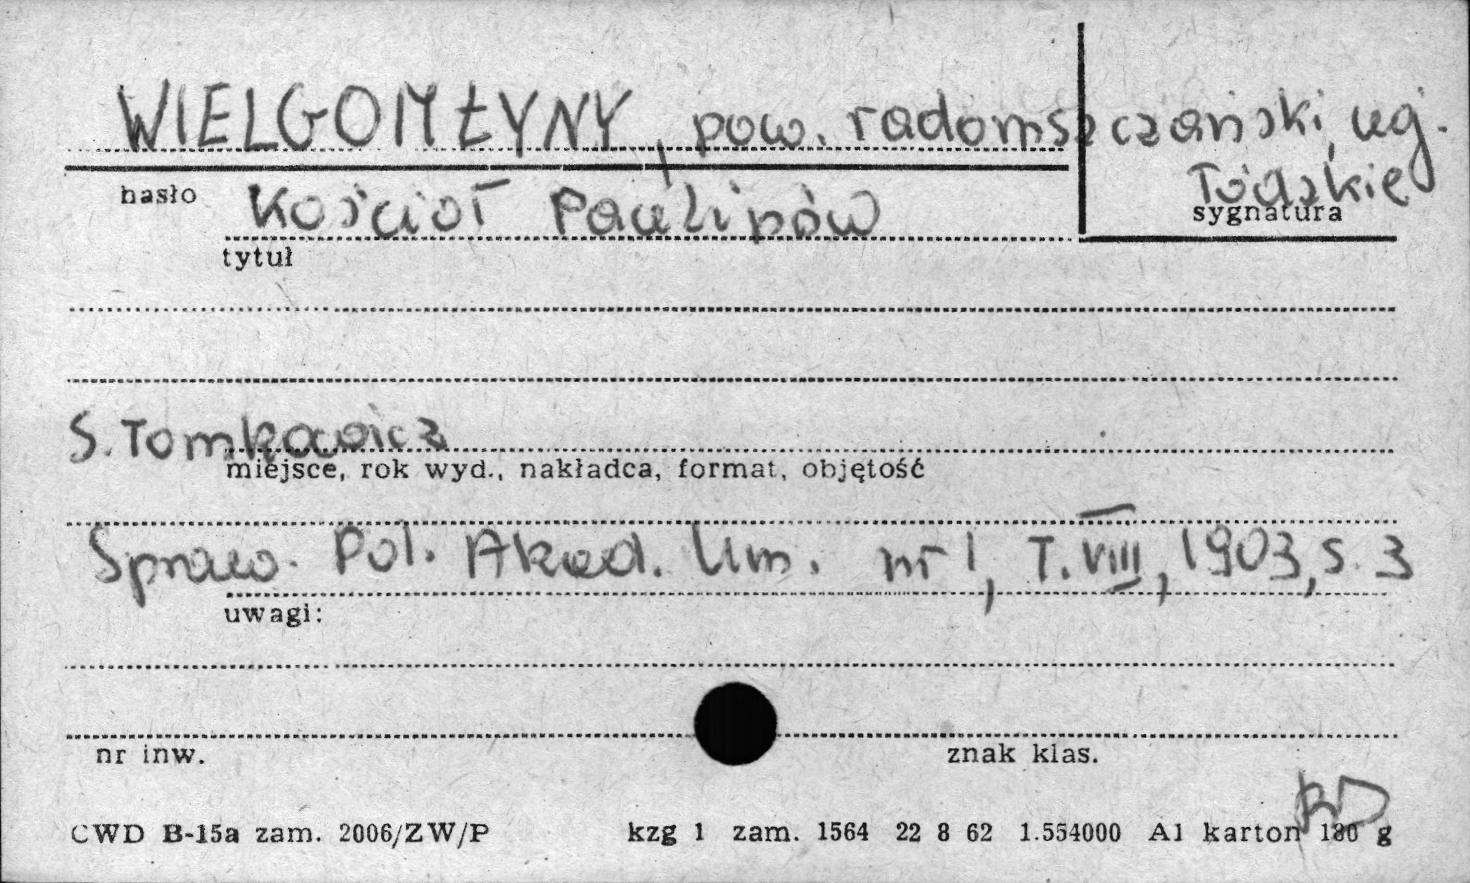 WIELGOMŁYNY, pow. radomszczański, woj.
łódzkie
hasło
Kościoł Paulinów
sygnatura
tytuł
S. Tomkowicz
miejsce, rok wyd., nakładca, format, objętość
Spraw. Pol. Akad. Um. nr 1, T. VIII, 1903, s. 3
uwagi:
nr inw.
znak klas.
CWD B-15a zam. 2006/ZW/P kzg 1 zam. 1564 22 8 62 1.554000 A1 karton 180 g